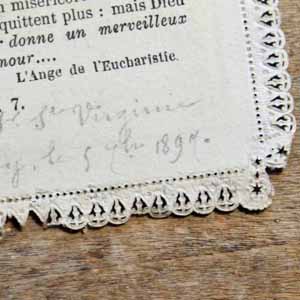 n miséricord
quittent plus : mais Dieu
r donne un merveilleux
mour....
L'Ange de l'Eucharistie.
7.
Ste Virginie
y, le 5 1897.